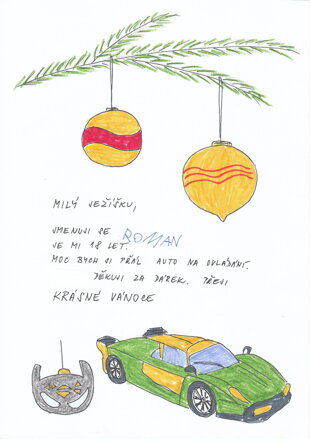 MILÝ JEŽÍŠKU,
JMENUJI SE ROMAN
JE MI 18 LET.
MOC BYCH SI PŘÁL AUTO NA OVLÁDÁNÍ.
DĚKUJI ZA DÁREK. PŘEJI
KRÁSNÉ VÁNOCE